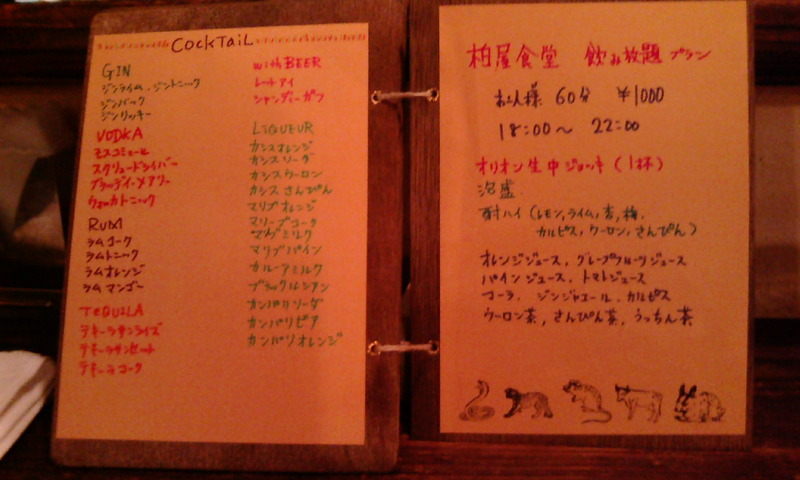 COCKTAIL
GIN
ジンライム、ジントニック
ジンバック
ジンリッキー
VODKA
モスコミュール
スクリュードライバー
ブラッディ・メアリー
ウォッカトニック
RUM
ラムコーク
ラムトニック
ラムオレンジ
ラムマンゴー
TEQUILA
テキーラサンライズ
テキーラサンセット
テキーラコーク
with BEER
レッドアイ
シャンディーガフ
LIQUEUR
カシスオレンジ
カシスソーダ
カシスウーロン
カシスさんぴん
マリブオレンジ
マリーブコーク
マリブミルク
マリブパイン
カルーアミルク
ブラックルシアン
カンパリソーダ
カンパリビア
カンパリオレンジ
柏屋食堂 飲み放題プラン
お一人様 60分 ¥1000
18:00〜 22:00
オリオン生中ジョッキ (1杯)
泡盛
酎ハイ (レモン,ライム,杏,梅,
カルピス,ウーロン,さんぴん)
オレンジジュース、グレープフルーツジュース
パインジュース、トマトジュース
コーラ、ジンジャエール、カルピス
ウーロン茶,さんぴん茶,うっちん茶